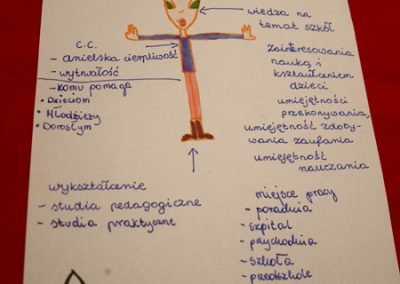 wiedza na
temat szkół
C.C.
- anielska cierpliwość
- wytrwałość
- komu pomaga
• Dzieciom
• Młodzieży
• Dorosłym
zainteresowania
nauką i
kształceniem
dzieci
umiejętności
przekonywania,
umiejętność zdoby-
wania zaufania
umiejętność
nauczania
wykształcenie
- studia pedagogiczne
- studia praktyczne
miejsce pracy
- poradnia
- szpital
- przychodnia
- szkoła
- przedszkole